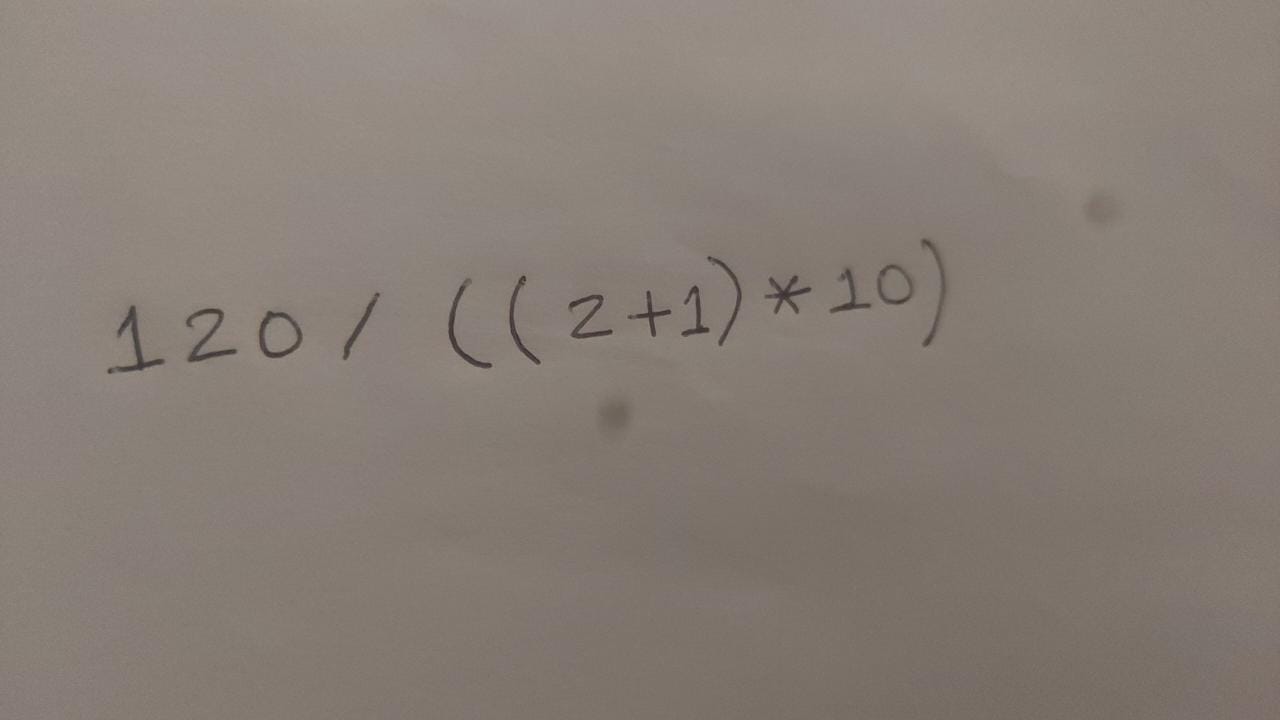 120 / ((2+1) * 10)